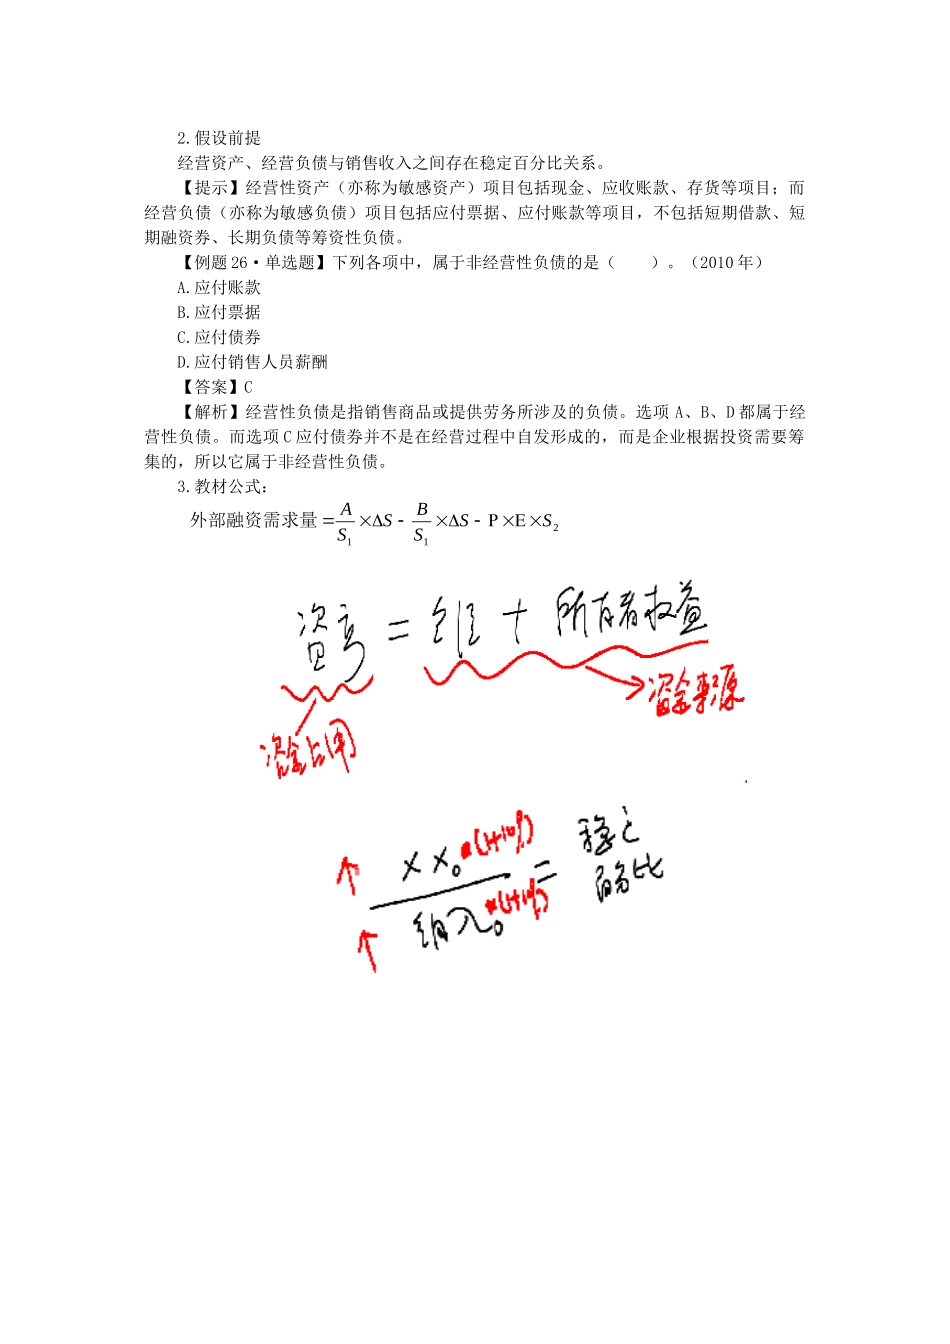 2.假设前提
经营资产、经营负债与销售收入之间存在稳定百分比关系。
【提示】经营性资产（亦称为敏感资产）项目包括现金、应收账款、存货等项目；而
经营负债（亦称为敏感负债）项目包括应付票据、应付账款等项目，不包括短期借款、短
期融资券、长期负债等筹资性负债。
【例题 26·单选题】下列各项中，属于非经营性负债的是（　　）。（2010 年）
A.应付账款
B.应付票据
C.应付债券
D.应付销售人员薪酬
【答案】C
【解析】经营性负债是指销售商品或提供劳务所涉及的负债。选项 A、B、D 都属于经
营性负债。而选项 C 应付债券并不是在经营过程中自发形成的，而是企业根据投资需要筹
集的，所以它属于非经营性负债。
3.教材公式：
外部融资需求量 = A/S₁ × ΔS - B/S₁ × ΔS - P × E × S₂
资产 = 负债 + 所有者权益
资金来源
资金占用
↑ XX₀*(1+10%) = 稳定
百分比
↑ 收入₀*(1+10%)